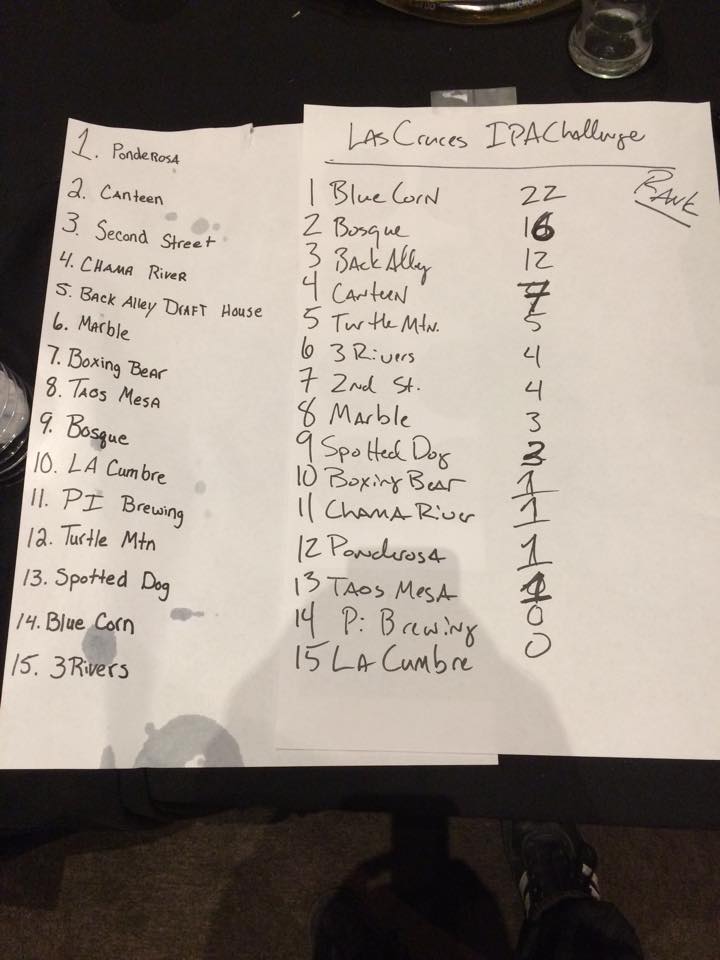 1. Ponderosa
2. Canteen
3. Second Street
4. Chama River
5. Back Alley Draft House
6. Marble
7. Boxing Bear
8. Taos Mesa
9. Bosque
10. La Cumbre
11. PI Brewing
12. Turtle Mtn
13. Spotted Dog
14. Blue Corn
15. 3 Rivers
Las Cruces IPA Challenge
Rank
1 Blue Corn 22
2 Bosque 16
3 Back Alley 12
4 Canteen 7
5 Turtle Mtn. 5
6 3 Rivers 4
7 2nd St. 4
8 Marble 3
9 Spotted Dog 3
10 Boxing Bear 1
11 Chama River 1
12 Ponderosa 1
13 Taos Mesa
14 Pi Brewing 0
15 La Cumbre 0